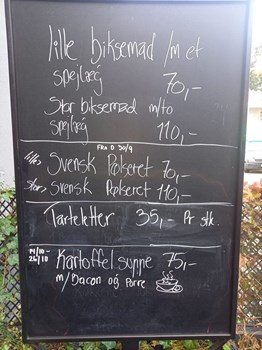 lille biksemad /m et
spejlæg 70,-
Stor biksemad m/to
spejlæg 110,-
FRA D 30/9
lille Svensk Pølseret 70,-
stor Svensk Pølseret 110,-
Tarteletter 35,- Pr stk.
Kartoffel suppe 75,-
26/10
m/Bacon og Porre